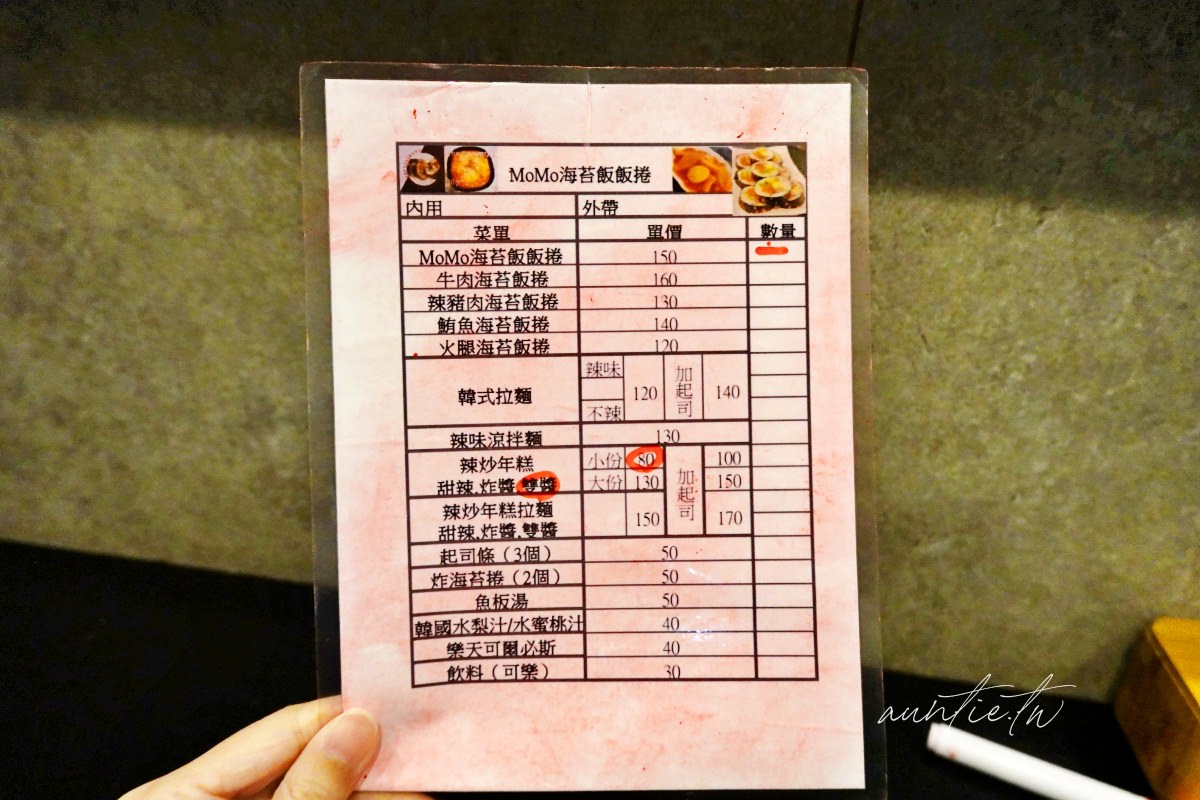 MoMo海苔飯飯捲
內用 外帶
菜單 單價 數量
MoMo海苔飯飯捲 150
牛肉海苔飯捲 160
辣豬肉海苔飯捲 130
鮪魚海苔飯捲 140
火腿海苔飯捲 120
韓式拉麵 辣味 不辣 120 加起司 140
辣味涼拌麵 130
辣炒年糕 小份 80 加起司 100
甜辣.炸醬.雙醬 大份 130 150
辣炒年糕拉麵 150 170
甜辣.炸醬.雙醬
起司條（3個） 50
炸海苔捲（2個） 50
魚板湯 50
韓國水梨汁/水蜜桃汁 40
樂天可爾必斯 40
飲料（可樂） 30
auntie.tw